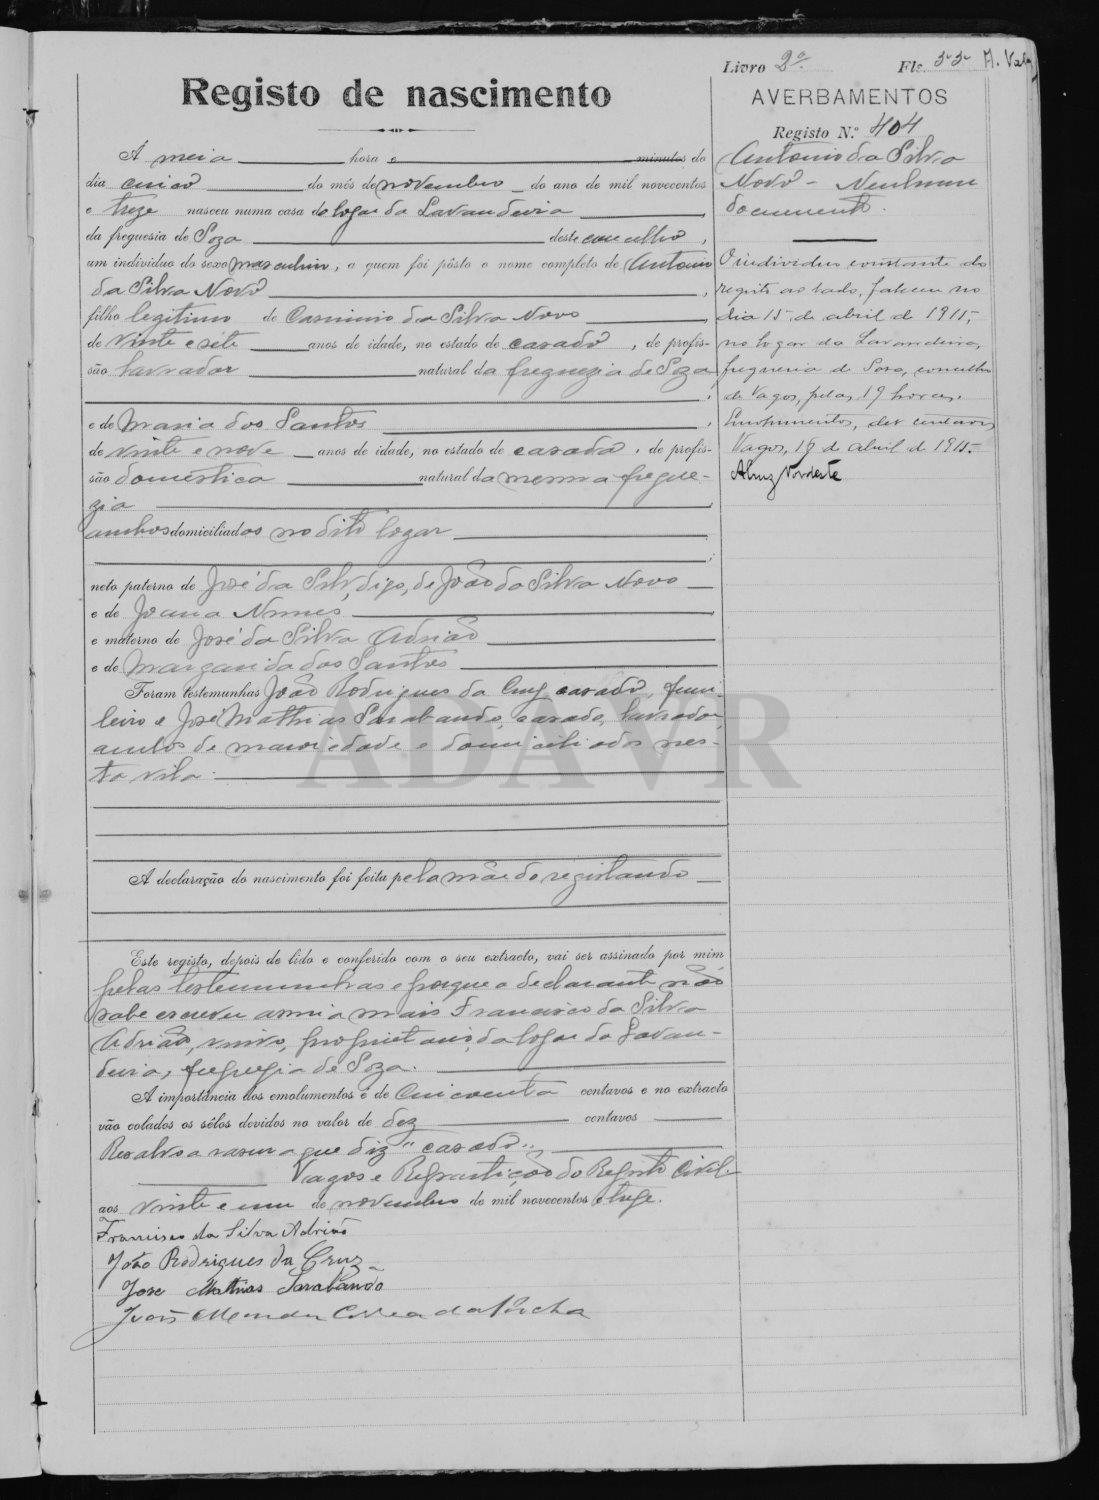 Livro 2º Fls. 55
Registo de nascimento
AVERBAMENTOS
Registo N.º 404
Antonio da Silva
Novo - Nenhum
documento.
O individuo constante do
registo ao lado, faleceu no
dia 15 de abril de 1915,
no logar da Lavandeira,
freguesia de Sosa, concelho
de Vagos, pelas 19 horas.
Emolumentos, dez centavos
Vagos, 19 de abril de 1915.
A meia hora e minutos do
dia cinco do mês de novembro do ano de mil novecentos
e treze nasceu numa casa do logar da Lavandeira,
da freguesia de Soza deste concelho,
um individuo do sexo masculino, a quem foi pôsto o nome completo de Antonio
da Silva Novo,
filho legitimo de Casimiro da Silva Novo,
de vinte e sete anos de idade, no estado de casado, de profis-
são lavrador natural da freguezia de Soza
e de Maria dos Santos,
de vinte e nove anos de idade, no estado de casada, de profis-
são domestica natural da mesma fregue-
zia
ambos domiciliados no dito logar
neto paterno de José da Silv, digo, de João da Silva Novo
e de Joana Nunes
e materno de José da Silva Adrião
e de Margarida dos Santos
Foram testemunhas João Rodrigues da Cruz casado, funi-
leiro e José Mathias Sarabando, casado, lavrador,
ambos de maior idade e domiciliados nes-
ta vila.
ADAVR
A declaração do nascimento foi feita pela mãe do registando
Este registo, depois de lido e conferido com o seu extracto, vai ser assinado por mim
pelas testemunhas e porque a declarante não
sabe escrever assina mais Francisco da Silva
Adrião, viuvo, proprietario, do logar da Lavan-
deira, freguezia de Soza.
A importância dos emolumentos é de cincoenta centavos e no extracto
vão colados os sêlos devidos no valor de dez centavos
Resalvo a rasura que diz "casado".
Vagos e Repartição do Registo Civil
aos vinte e um de novembro de mil novecentos e treze.
Francisco da Silva Adrião
João Rodrigues da Cruz
Jose Mathias Sarabando